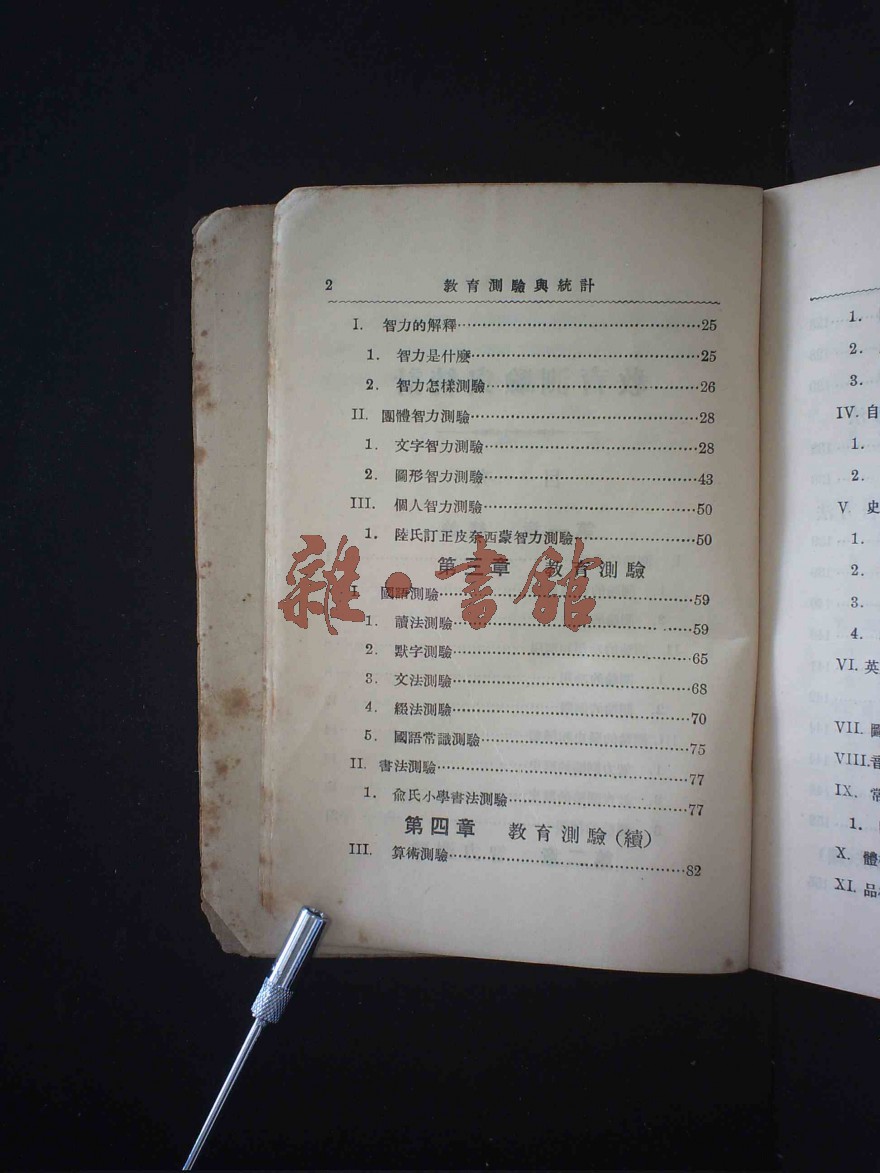 2 教育測驗與統計
I. 智力的解釋……25
1. 智力是什麽……25
2. 智力怎樣測驗……26
II. 團體智力測驗……28
1. 文字智力測驗……28
2. 圖形智力測驗……43
III. 個人智力測驗……50
1. 陸氏訂正皮奈西蒙智力測驗……50
第三章 教育測驗
I. 國語測驗……59
1. 讀法測驗……59
2. 默字測驗……65
3. 文法測驗……68
4. 綴法測驗……70
5. 國語常識測驗……75
II. 書法測驗……77
1. 兪氏小學書法測驗……77
第四章 教育測驗(續)
III. 算術測驗……82
雜·書館
1.
2.
3.
IV. 自
1.
2.
V 史
1.
2.
3.
4.
VI. 英
VII. 圖
VIII. 音
IX. 常
1.
X. 體
XI. 品